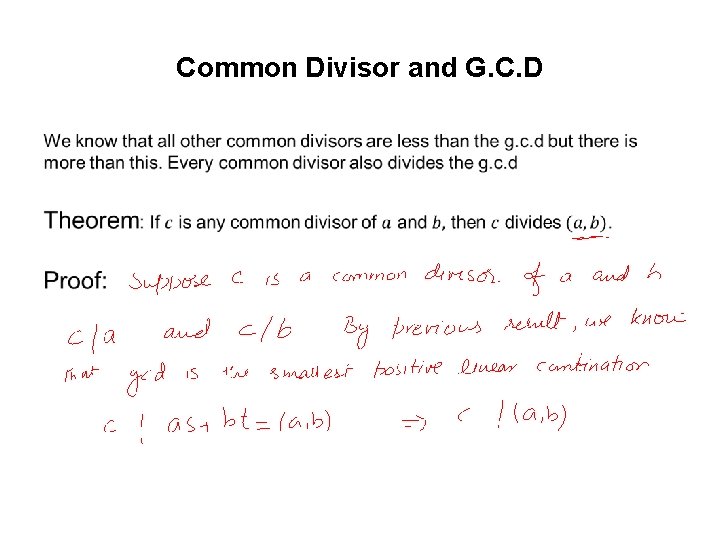 Common Divisor and G.C.D
We know that all other common divisors are less than the g.c.d but there is
more than this. Every common divisor also divides the g.c.d
Theorem: If c is any common divisor of a and b, then c divides (a, b).
Proof: Suppose c is a common divisor of a and b
c/a and c/b By previous result, we know
that gcd is the smallest positive linear combination
c | as+bt = (a,b) ⇒ c | (a,b)